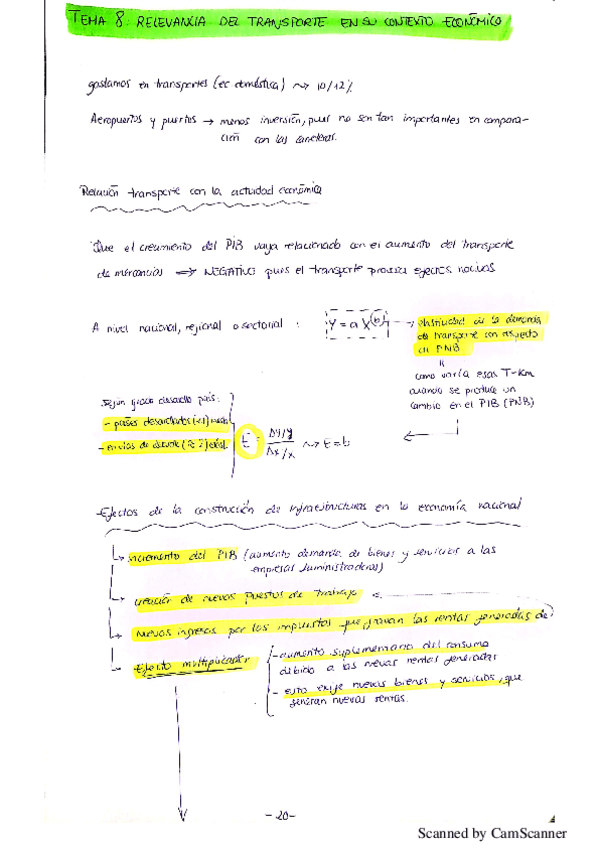 TEMA 8: RELEVANCIA DEL TRANSPORTE EN SU CONTEXTO ECONÓMICO
gastamos en transportes (ec doméstica) ~> 10/12%
Aeropuertos y puertos → menos inversión, pues no son tan importantes en compara-
ción con las carreteras.
Relación transporte con la actividad económica
Que el crecimiento del PIB vaya relacionado con el aumento del transporte
de mercancías ⇒ NEGATIVO pues el transporte provoca efectos nocivos
A nivel nacional, regional o sectorial : Y = a X^(b) → elasticidad de la demanda
de transporte con respecto
al PNB
como varía esas T-Km
cuando se produce un
cambio en el PIB (PNB)
Según grado desarrollo país:
- países desarrollados (<1)
- en vías de desarrollo (≈ 2)
E = Δy/y / Δx/x ~> E = b
- Efectos de la construcción de infraestructuras en la economía nacional
↳ incremento del PIB (aumento demanda de bienes y servicios a las
empresas suministradoras)
↳ creación de nuevos puestos de trabajo
↳ Nuevos ingresos por los impuestos que gravan las rentas generadas de
↳ Efecto multiplicador
- aumento suplementario del consumo
debido a las nuevas rentas generadas
- esto exige nuevos bienes y servicios, que
generan nuevas rentas.
-20-
Scanned by CamScanner